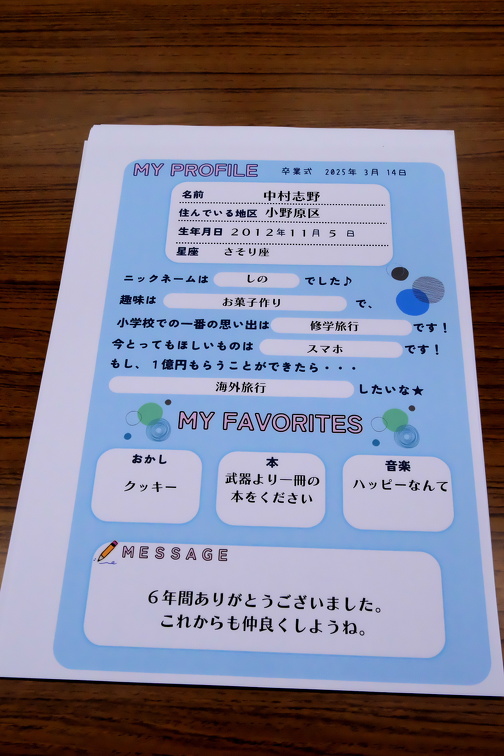 MY PROFILE 卒業式 2025年 3月 14日
名前 中村志野
住んでいる地区 小野原区
生年月日 2012年11月 5 日
星座 さそり座
ニックネームは しの でした♪
趣味は お菓子作り で、
小学校での一番の思い出は 修学旅行 です！
今とってもほしいものは スマホ です！
もし、1億円もらうことができたら・・・
海外旅行 したいな★
MY FAVORITES
おかし 本 音楽
クッキー 武器より一冊の ハッピーなんて
本をください
MESSAGE
6年間ありがとうございました。
これからも仲良くしようね。